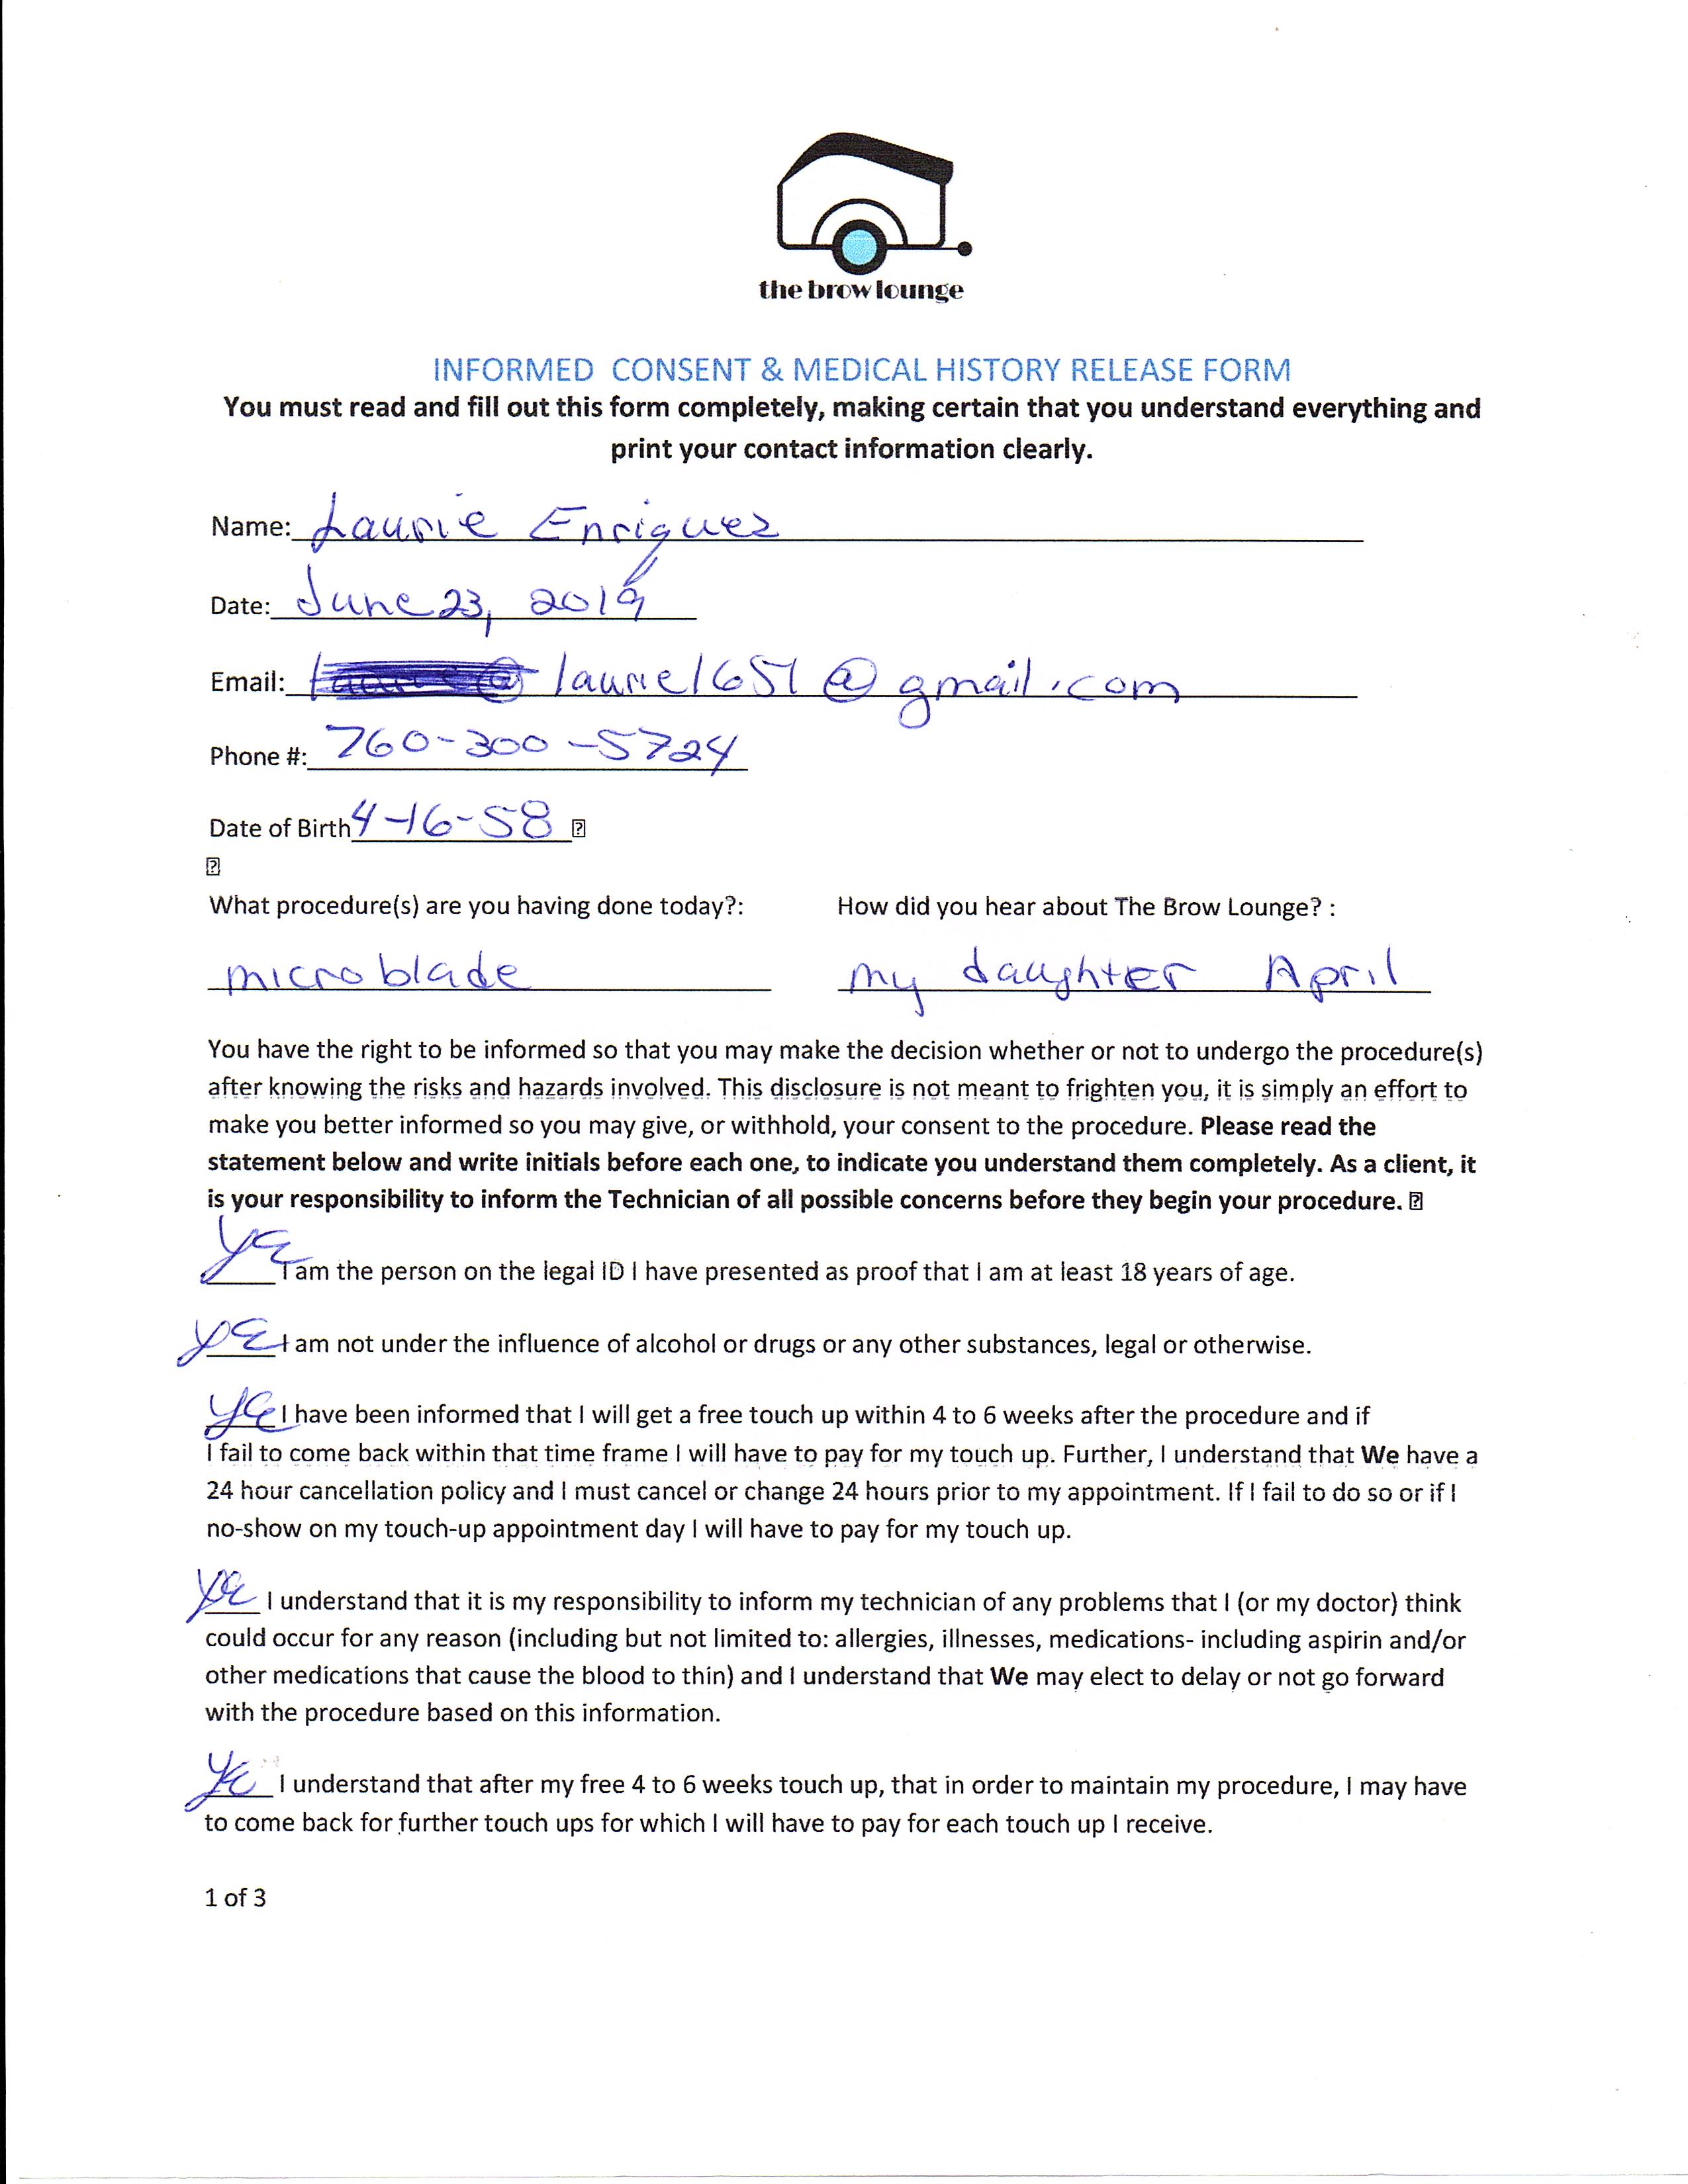 the brow lounge
INFORMED CONSENT & MEDICAL HISTORY RELEASE FORM
You must read and fill out this form completely, making certain that you understand everything and
print your contact information clearly.
Name: Laurie Enriquez
Date: June 23, 2019
Email: laurie1651@gmail.com
Phone #: 760-300-5724
Date of Birth 4-16-58
What procedure(s) are you having done today?: How did you hear about The Brow Lounge? :
microblade my daughter April
You have the right to be informed so that you may make the decision whether or not to undergo the procedure(s)
after knowing the risks and hazards involved. This disclosure is not meant to frighten you, it is simply an effort to
make you better informed so you may give, or withhold, your consent to the procedure. Please read the
statement below and write initials before each one, to indicate you understand them completely. As a client, it
is your responsibility to inform the Technician of all possible concerns before they begin your procedure.
I am the person on the legal ID I have presented as proof that I am at least 18 years of age.
I am not under the influence of alcohol or drugs or any other substances, legal or otherwise.
I have been informed that I will get a free touch up within 4 to 6 weeks after the procedure and if
I fail to come back within that time frame I will have to pay for my touch up. Further, I understand that We have a
24 hour cancellation policy and I must cancel or change 24 hours prior to my appointment. If I fail to do so or if I
no-show on my touch-up appointment day I will have to pay for my touch up.
I understand that it is my responsibility to inform my technician of any problems that I (or my doctor) think
could occur for any reason (including but not limited to: allergies, illnesses, medications- including aspirin and/or
other medications that cause the blood to thin) and I understand that We may elect to delay or not go forward
with the procedure based on this information.
I understand that after my free 4 to 6 weeks touch up, that in order to maintain my procedure, I may have
to come back for further touch ups for which I will have to pay for each touch up I receive.
1 of 3